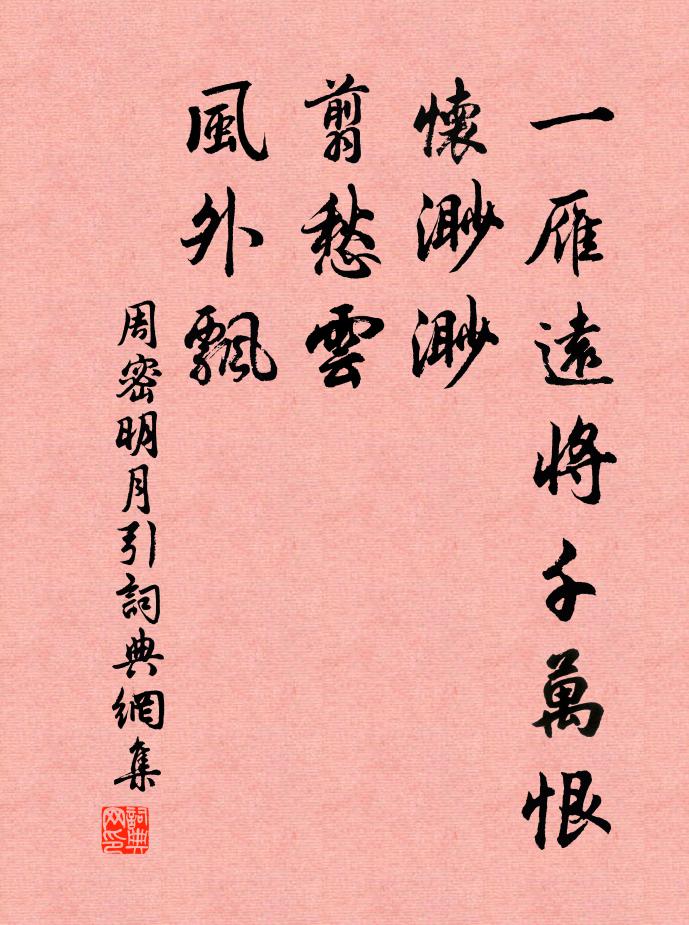 一雁遠將千萬恨
懷渺渺
翦愁雲
風外飄
周密明月引詞典網集
詞典
网印